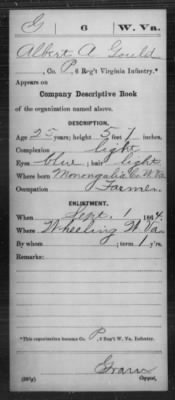 G 6 W. Va.
Albert A Gould
, Co. P, 6 Reg't Virginia Infantry.*
Appears on
Company Descriptive Book
of the organization named above.
DESCRIPTION.
Age 25 years; height 5 feet 7 inches.
Complexion light
Eyes blue; hair light
Where born Monongalia Co. W. Va
Occupation Farmer.
ENLISTMENT.
When Sept. 1, 1864.
Where Wheeling W. Va
By whom ; term 1 y'rs.
Remarks:
*This organization became Co. P, 6 Reg't W. Va. Infantry.
Copyist.